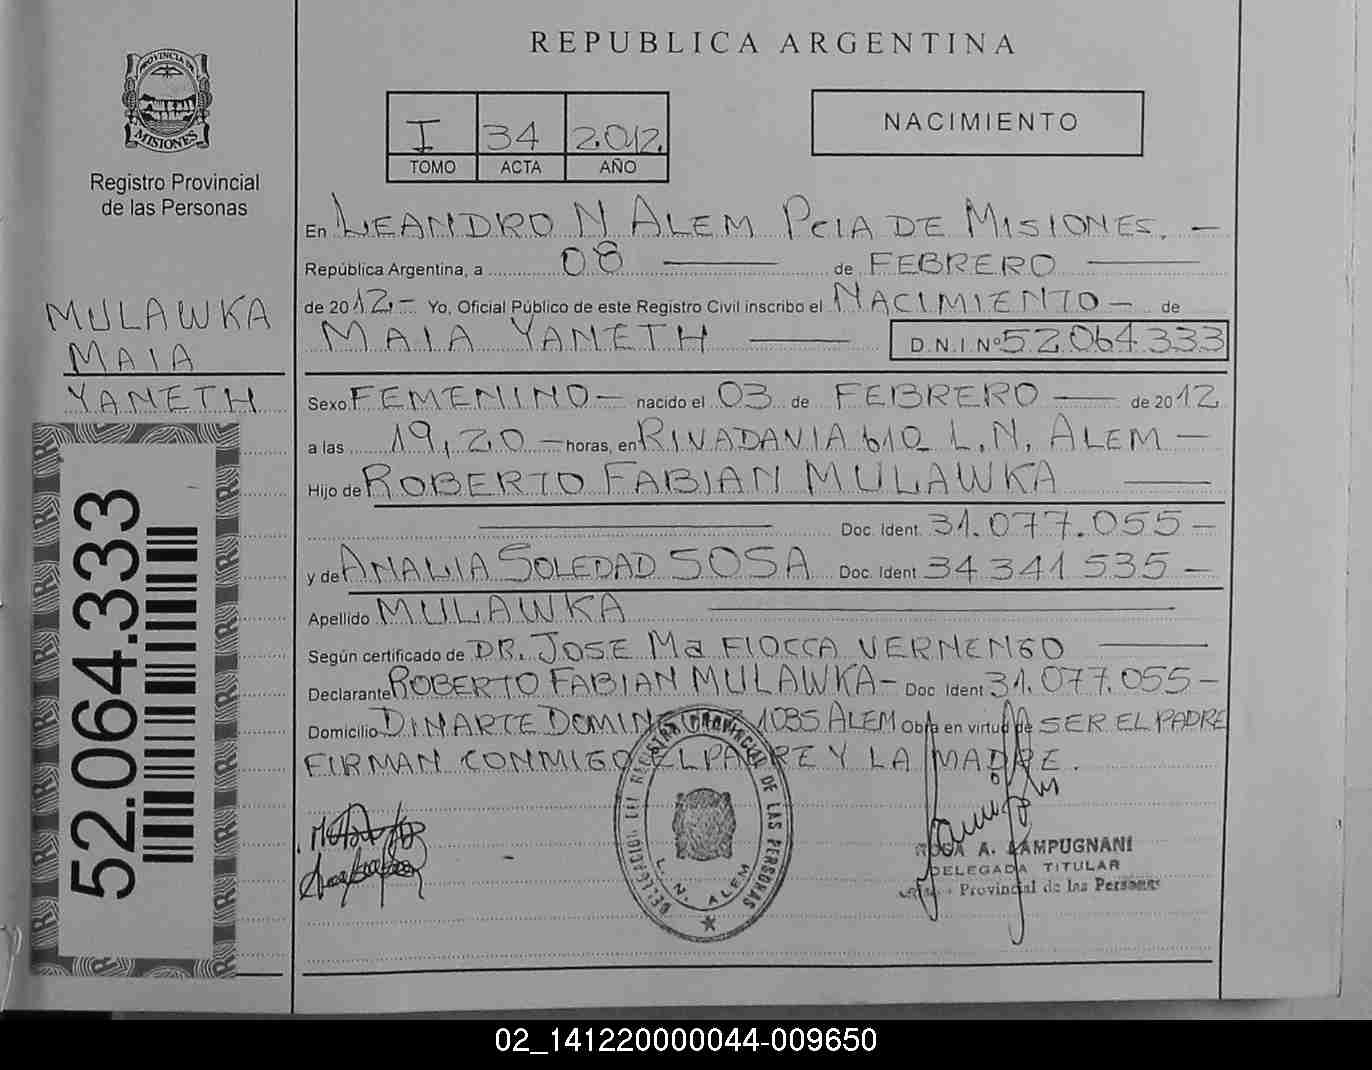 REPUBLICA ARGENTINA
PROVINCIA DE
MISIONES
Registro Provincial
de las Personas
I 34 2.012.
TOMO ACTA AÑO
NACIMIENTO
MULAWKA
MAIA
YANETH
52.064.333
En LEANDRO N ALEM PCIA DE MISIONES. —
República Argentina, a 08 — de FEBRERO —
de 2012.- Yo, Oficial Público de este Registro Civil inscribo el NACIMIENTO — de
MAIA YANETH — D.N.I. Nº 52.064.333
Sexo FEMENINO — nacido el 03 de FEBRERO — de 2012
a las 19,20 — horas, en RIVADAVIA 610 L.N. ALEM —
Hijo de ROBERTO FABIAN MULAWKA —
— Doc. Ident. 31.077.055 —
y de ANALIA SOLEDAD SOSA Doc. Ident 34 341 535 —
Apellido MULAWKA —
Según certificado de DR. JOSE Ma FIOCCA VERNENGO —
Declarante ROBERTO FABIAN MULAWKA — Doc. Ident 31.077.055 —
Domicilio DINARTE 1035 ALEM Obra en virtud de SER EL PADRE
FIRMAN CONMIGO EL PADRE Y LA MADRE.
DELEGACION DEL REGISTRO PROVINCIAL DE LAS PERSONAS
L. N. ALEM
A. LAMPUGNANI
DELEGADA TITULAR
Provincial de las Personas
02_141220000044-009650